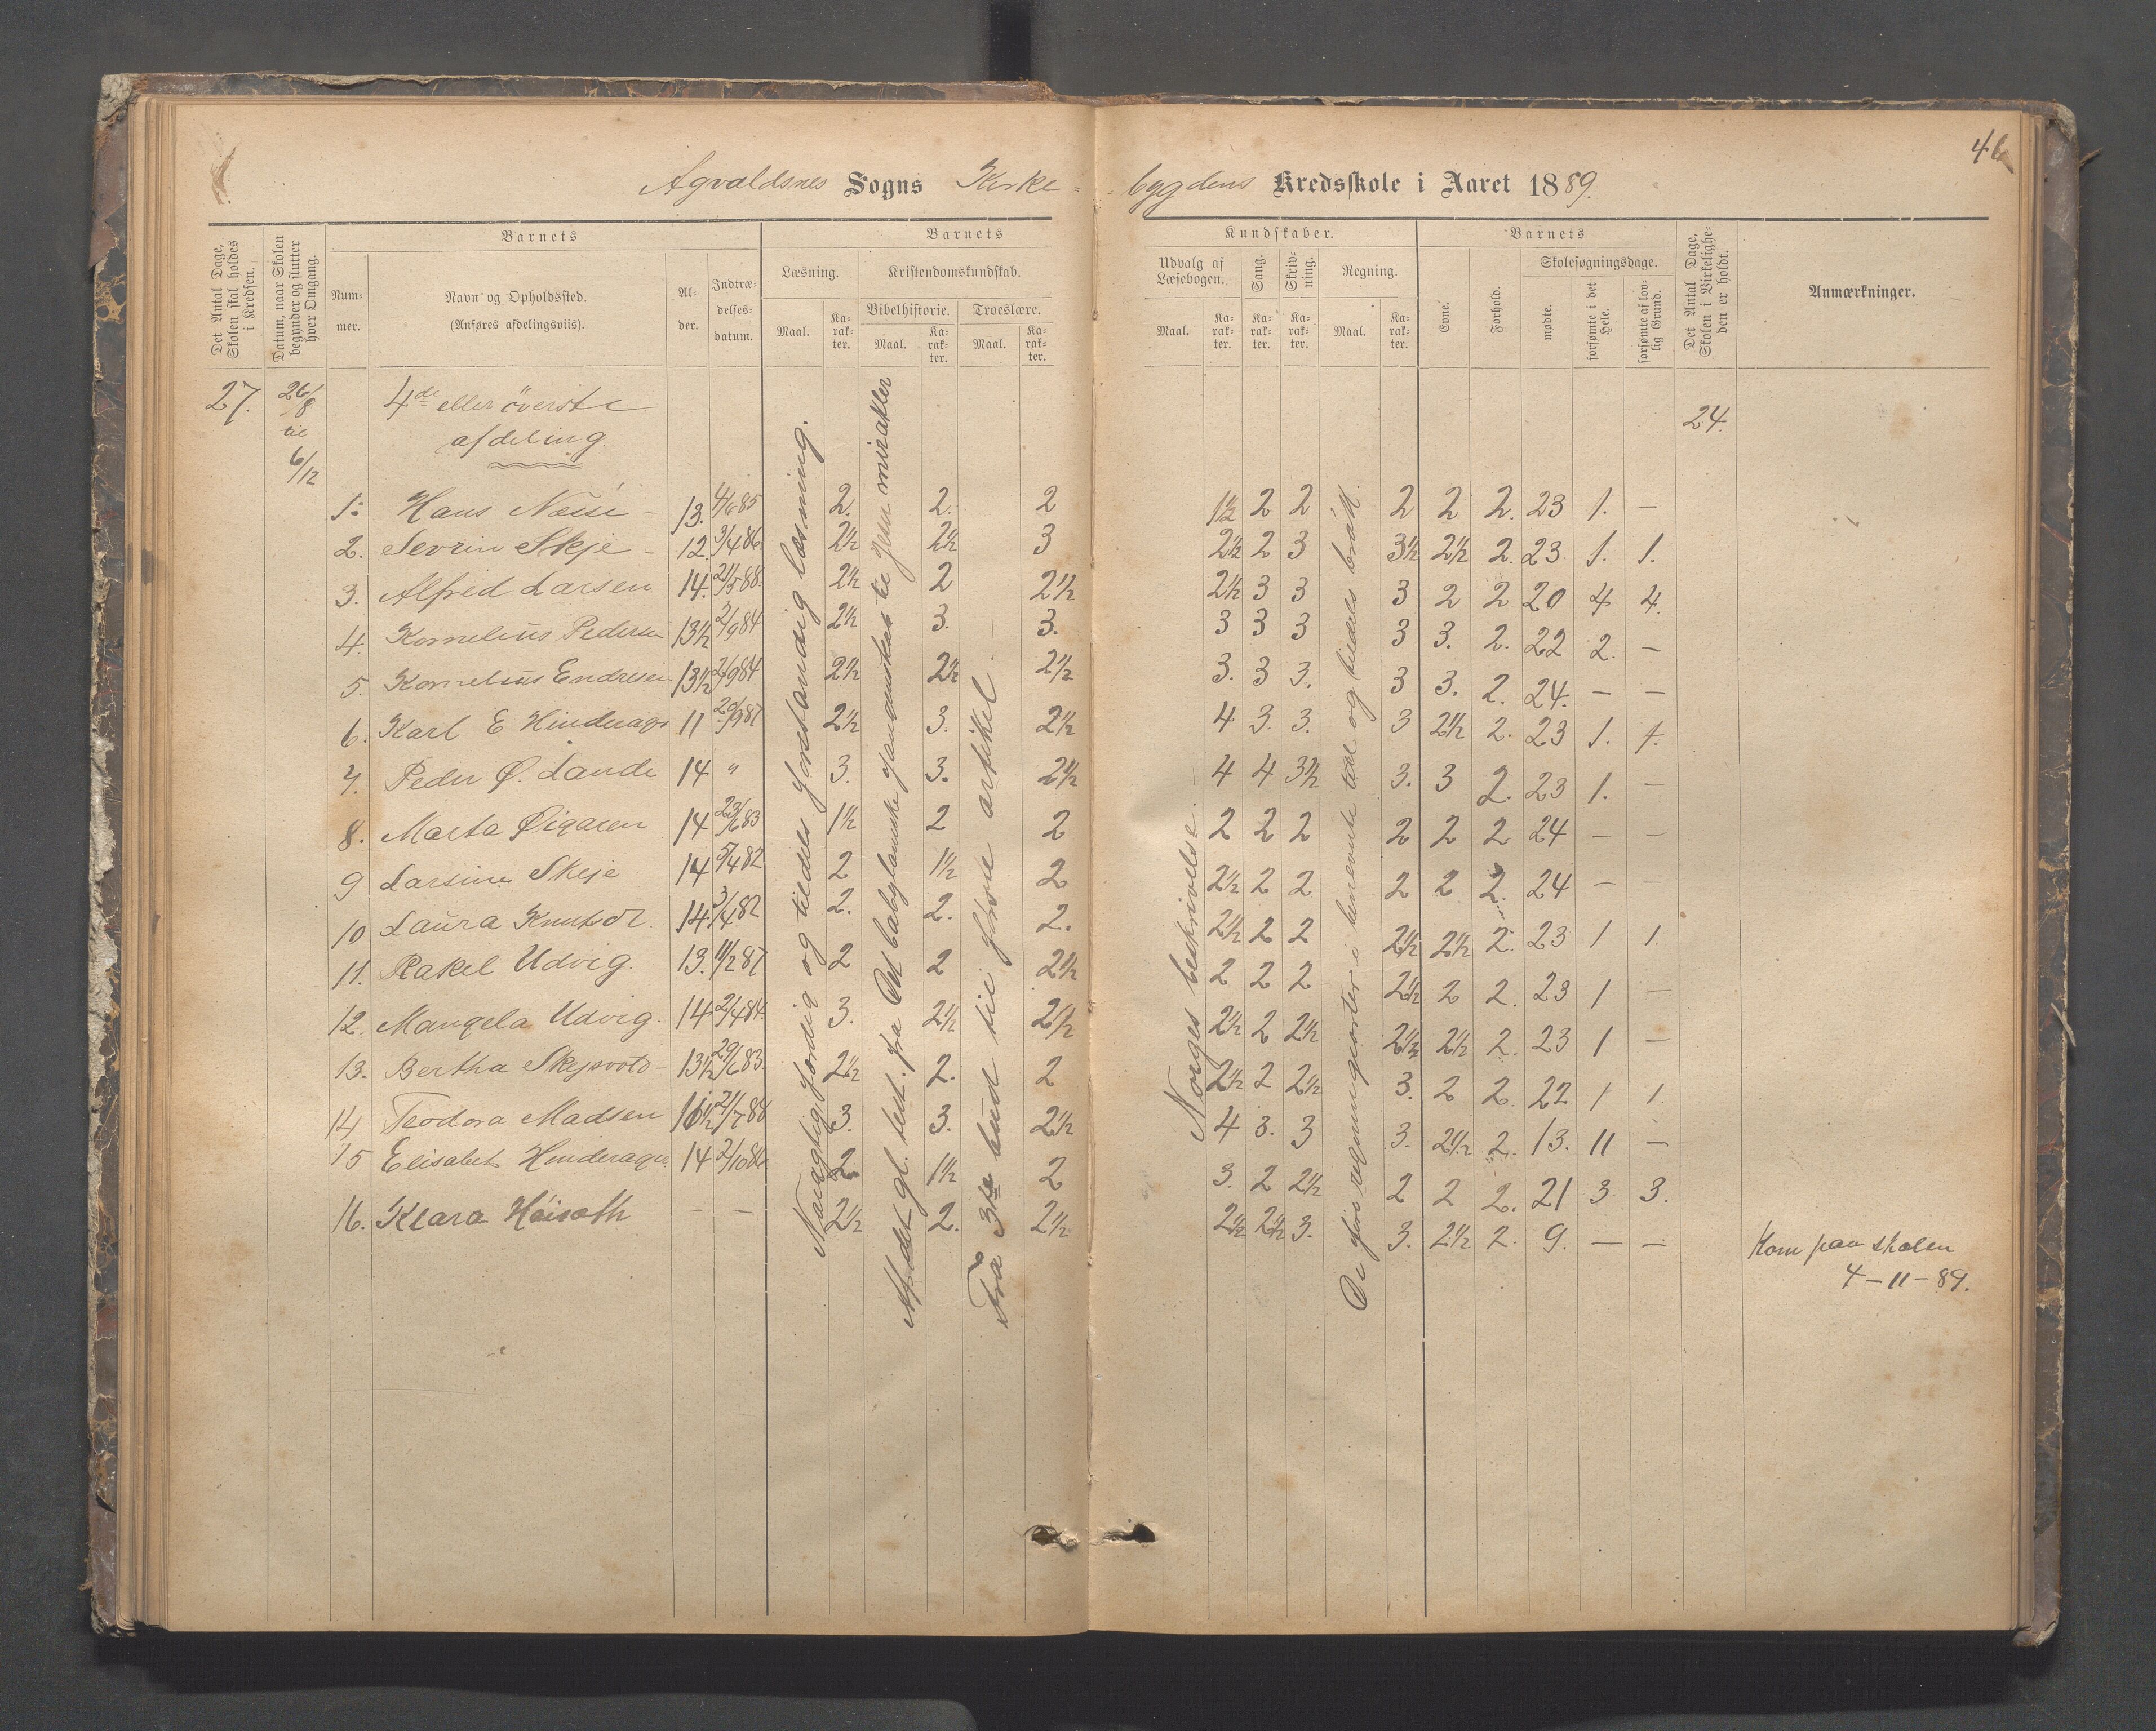 46
Agvaldsnes Sogns Kirke-
bygdens Kredsskole i Aaret 1889.
Det Antal Dage, Skolen skal holdes i Kredsen.
Datum, naar Skolen begynder og slutter hver Omgang.
Barnets
Num-
mer.
Navn og Opholdssted.
(Anføres afdelingsviis).
Al-
der.
Indtræ-
delses-
datum.
Barnets
Læsning.
Maal.
Ka-
rak-
ter.
Kristendomskundskab.
Bibelhistorie.
Maal.
Ka-
rak-
ter.
Troeslære.
Maal.
Ka-
rak-
ter.
Kundskaber.
Udvalg af
Læsebogen.
Maal.
Ka-
rak-
ter.
Sang.
Ka-
rak-
ter.
Skriv-
ning.
Ka-
rak-
ter.
Regning.
Maal.
Ka-
rak-
ter.
Barnets
Evne.
Forhold.
Skolesøgningsdage.
mødte.
forsømte i det Hele.
forsømte af lov-
lig Grund.
Det Antal Dage, Skolen i Virkelighe-
den er holdt.
Anmærkninger.
27. 26/8 4de eller överste 24.
til afdeling.
6/12
1. Hans Neise 13. 4/6 85 2. 2. 2 1½ 2 2 2 2 2. 23 1. –
2. Sevrin Skeje 12. 3/4 86. 2½ 2½ 3 2½ 2 3 3½ 2½ 2. 23. 1. 1.
3. Alfred Larsen 14. 21/5 88. 2½ 2 2½ 2½ 3 3 3 2 2 20 4 4.
4. Kornelius Pedersen 13½ 2/9 84 2½ 3. 3. 3 3 3 3 3. 2. 22 2. –
5. Kornelius Endresen 13½ 2/9 84 2½ 2½ 2½ 3. 3 3. 3 3. 2. 24. – –
6. Karl E Hinderager 11 20/9 87 2½ 3. 2½ 4 3. 3. 3 2½ 2. 23 1. 1.
7. Peder Ø. Lande 14 " 3. 3. 2½ 4 4 3½ 3. 3 2. 23 1. –
8. Marta Øigaren 14 23/6 83 1½ 2 2 2 2 2 2 2 2 24 – –
9 Larsine Skeje 14 5/4 82 2 1½ 2 2½ 2 2 2 2 2. 24 – –
10 Laura Knutsdr. 14 3/4 82 2. 2. 2. 2½ 2 2 2½ 2½ 2. 23 1 1.
11. Rakel Udvig. 13. 11/2 87 2 2 2½ 2 2 2 2½ 2 2. 23 1 –
12. Mangela Udvig. 14 2/4 84. 3. 2½ 2½ 2½ 2 2½ 2½ 2½ 2. 23 1 –
13. Bertha Skejsvold 13½ 29/6 83. 2½ 2. 2 2½ 2 2½ 3. 2 2. 22 1 1.
14 Teodora Madsen 11½ 21/7 88 3. 3. 2½ 4 3. 3 3. 2½ 2. 13. 11 –
15 Elisabet Hinderager. 14 2/10 84 2. 1½ 2 3. 2 2½ 2 2 2. 21 3 3.
16. Klara Höiseth – – 2½ 2. 2½ 2½ 2½ 3. 3. 2½ 2. 9. – –
Kom paa skolen
4–11–89.
Nøiagtig færdig og tildels forstandig læsning.
Af det gl. test. fra Det babylonske fangenskab til Jesu mirakler
Fra 3die bud til første artikel
Norges beskrivelse.
De fire regningsarter i benevnte tal og tildels brøk.